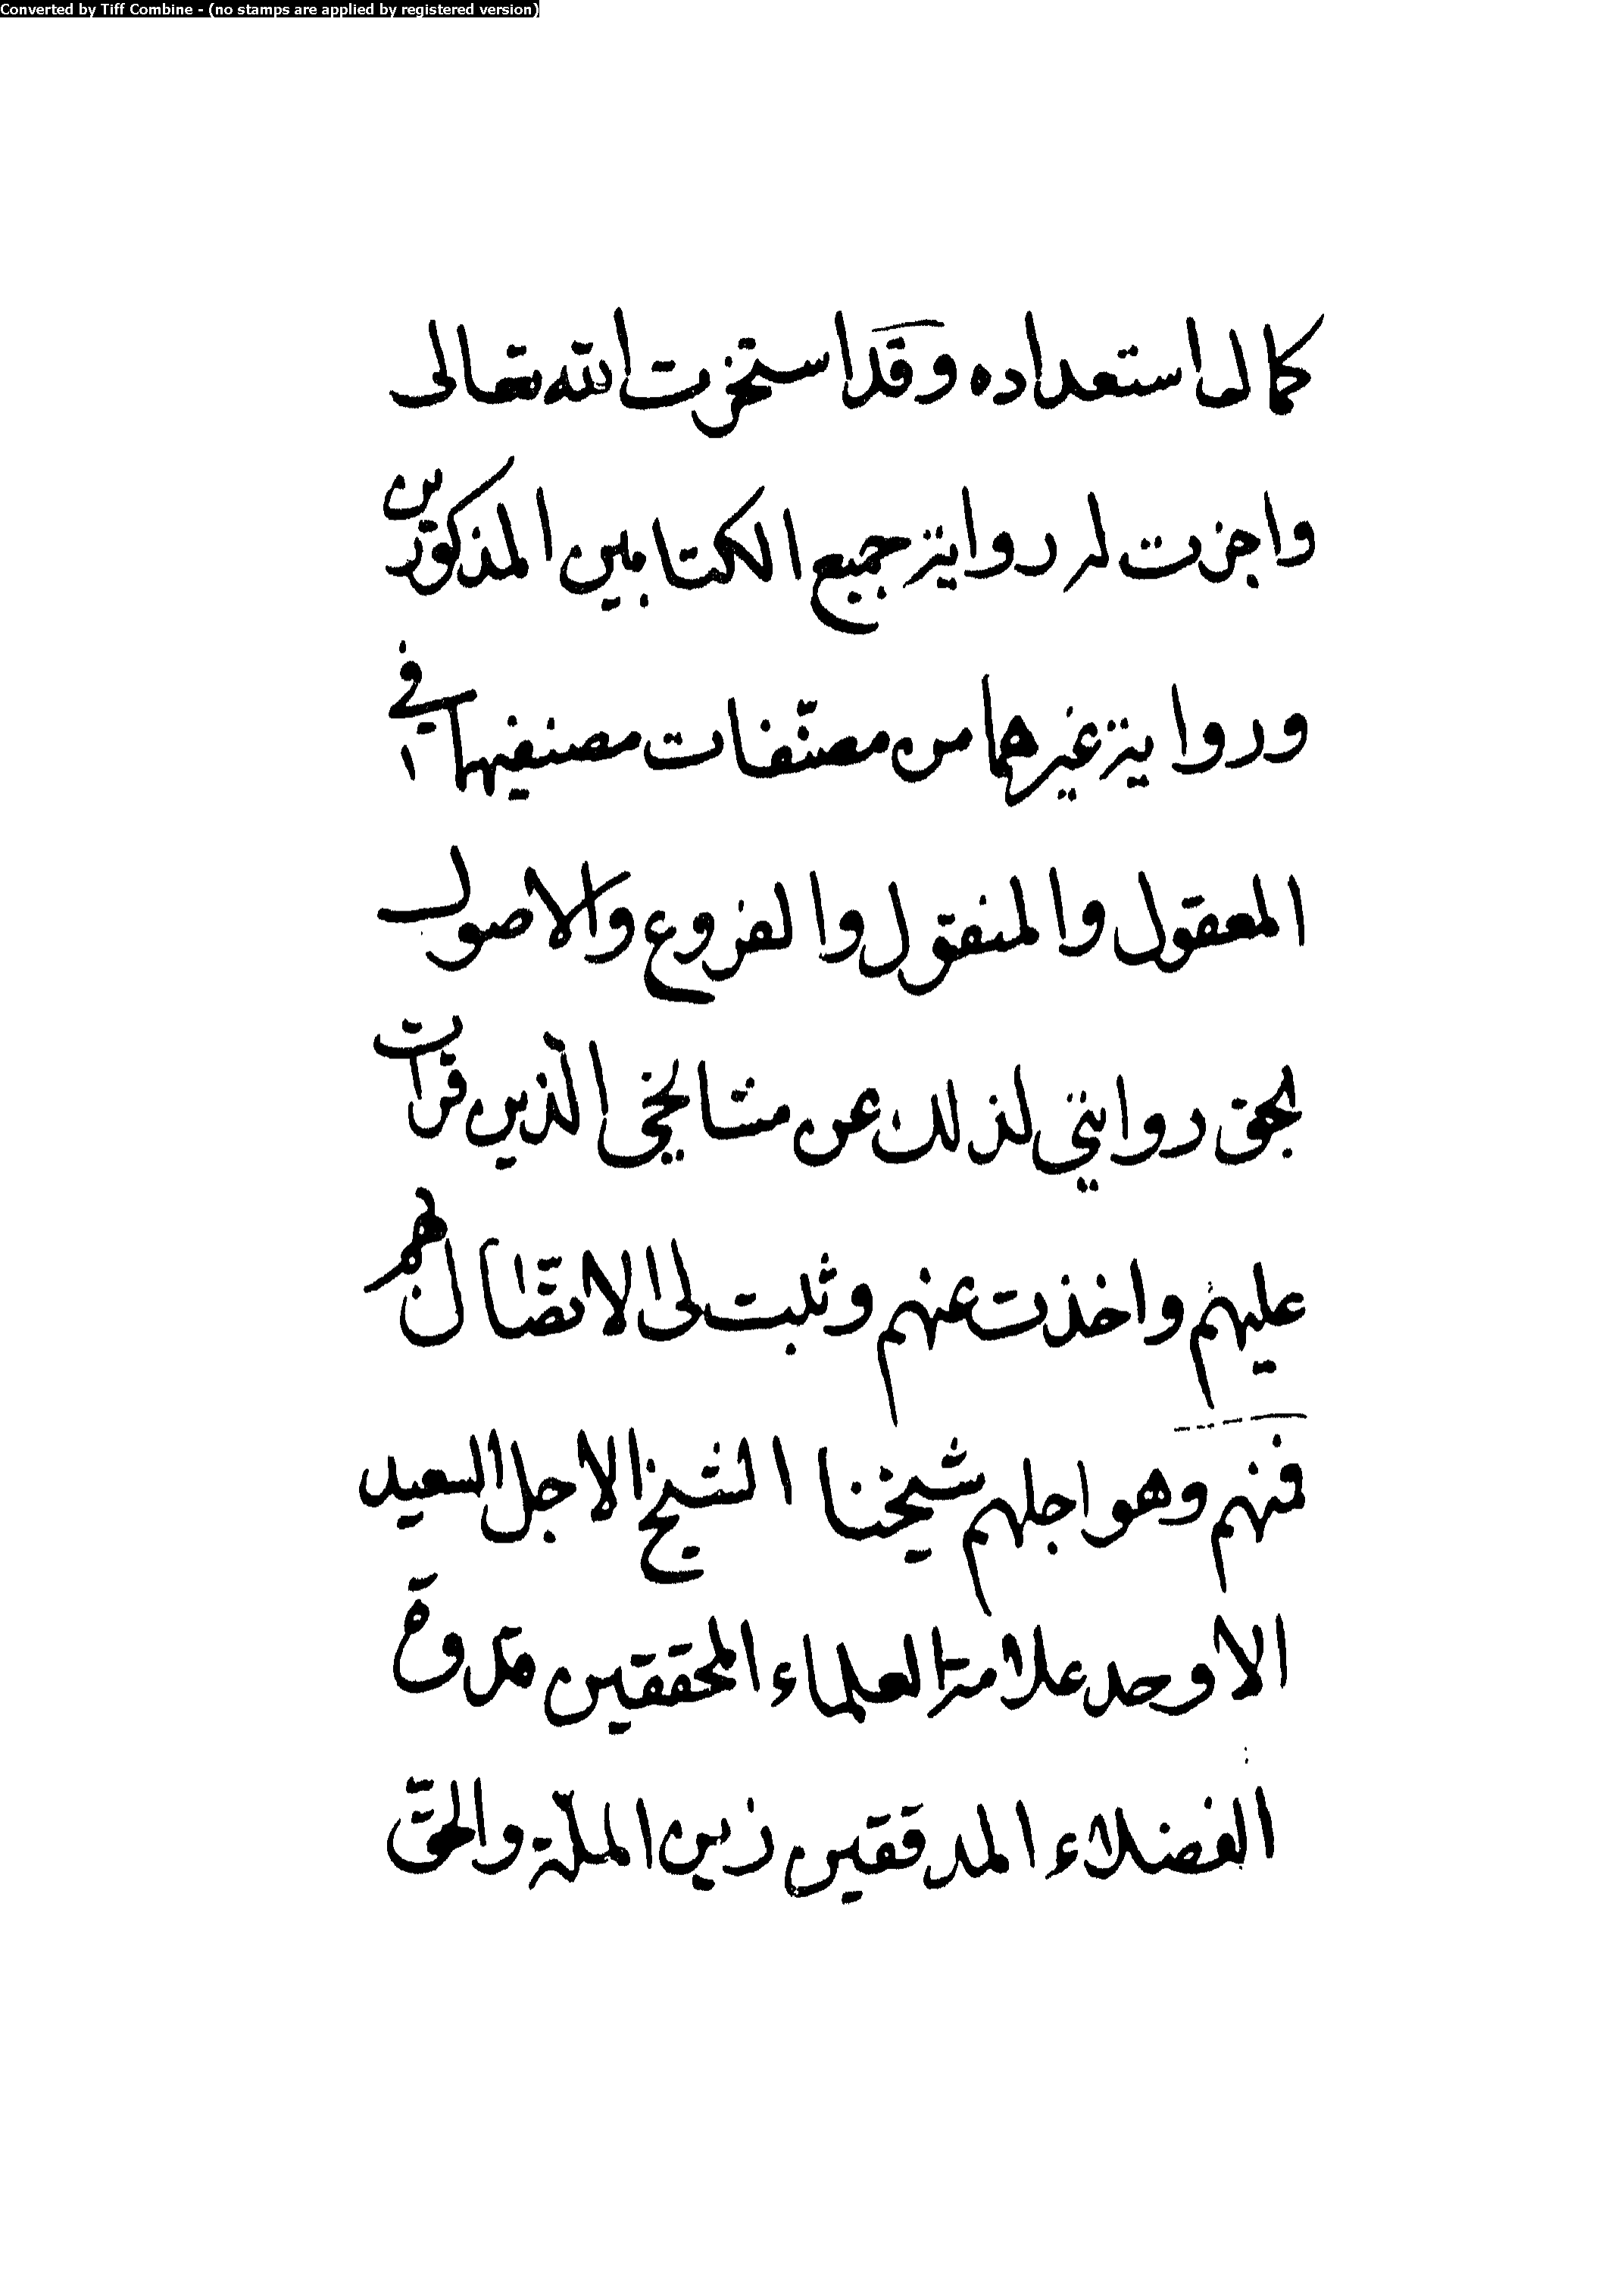 Converted by Tiff Combine - (no stamps are applied by registered version)
كمال استعداده وقد استخرت الله تعالى
واجزت له رواية جميع الكتابين المذكورين
ورواية غيرهما من مصنّفات مصنفيهما في
المعقول والمنقول والفروع والاصول
بحق روايتي لذلك عن مشايخي الّذين قرات
عليهم واخذت عنهم وثبت لى الاتّصال بهم
فمنهم وهو اجلهم شيخنا الشيخ الاجل السعيد
الاوحد علامة العلماء المحققين قدوة
الفضلاء المدققين زين الملّة والحقّ